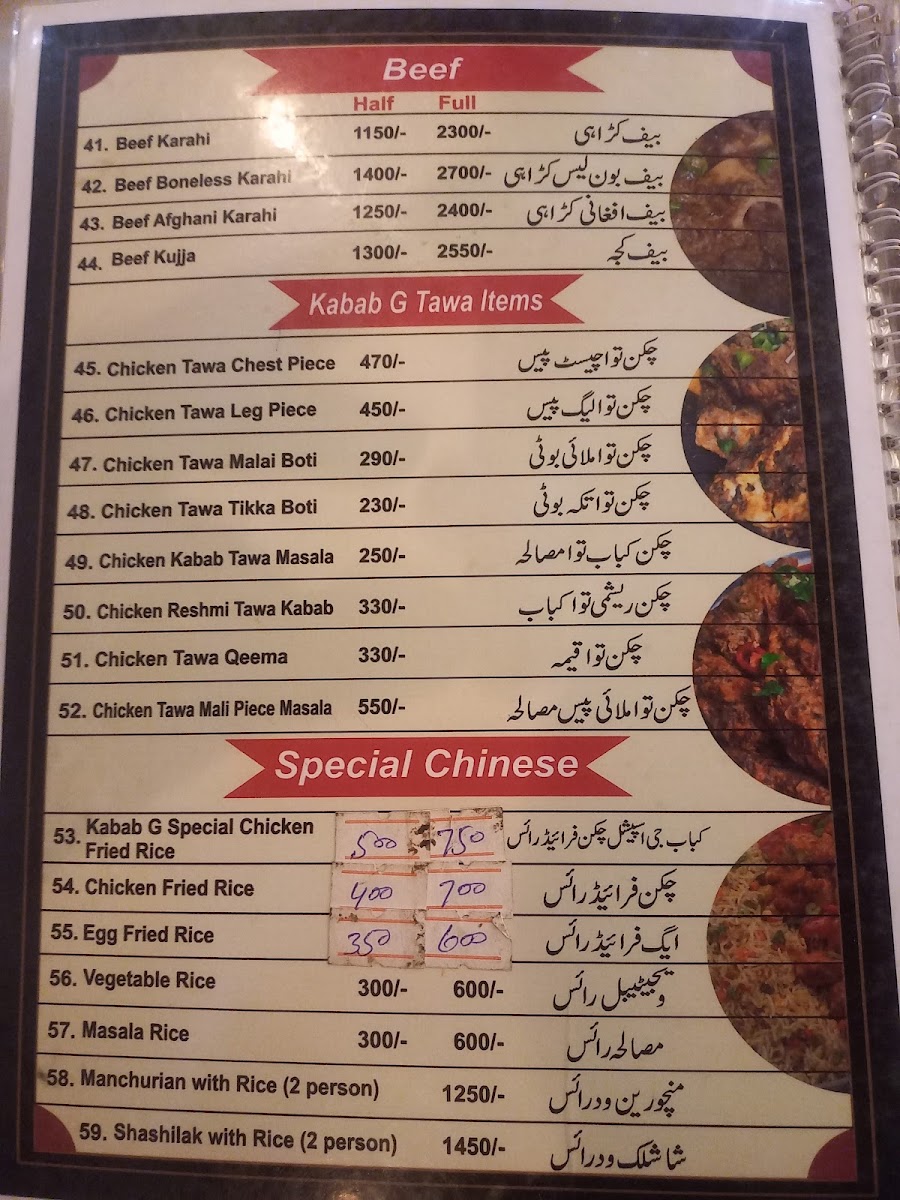 Beef
Half Full
41. Beef Karahi 1150/- 2300/- بیف کڑاہی
42. Beef Boneless Karahi 1400/- 2700/- بیف بون لیس کڑاہی
43. Beef Afghani Karahi 1250/- 2400/- بیف افغانی کڑاہی
44. Beef Kujja 1300/- 2550/- بیف کجہ
Kabab G Tawa Items
45. Chicken Tawa Chest Piece 470/- چکن توا چیسٹ پیس
46. Chicken Tawa Leg Piece 450/- چکن توا لیگ پیس
47. Chicken Tawa Malai Boti 290/- چکن توا ملائی بوٹی
48. Chicken Tawa Tikka Boti 230/- چکن توا تکہ بوٹی
49. Chicken Kabab Tawa Masala 250/- چکن کباب توا مصالحہ
50. Chicken Reshmi Tawa Kabab 330/- چکن ریشمی توا کباب
51. Chicken Tawa Qeema 330/- چکن توا قیمہ
52. Chicken Tawa Mali Piece Masala 550/- چکن توا ملائی پیس مصالحہ
Special Chinese
53. Kabab G Special Chicken 500 750 کباب جی اسپیشل چکن فرائیڈ رائس
Fried Rice
54. Chicken Fried Rice 400 700 چکن فرائیڈ رائس
55. Egg Fried Rice 350 600 ایگ فرائیڈ رائس
56. Vegetable Rice 300/- 600/- ویجیٹیبل رائس
57. Masala Rice 300/- 600/- مصالحہ رائس
58. Manchurian with Rice (2 person) 1250/- منچورین ود رائس
59. Shashilak with Rice (2 person) 1450/- شاشلک ود رائس